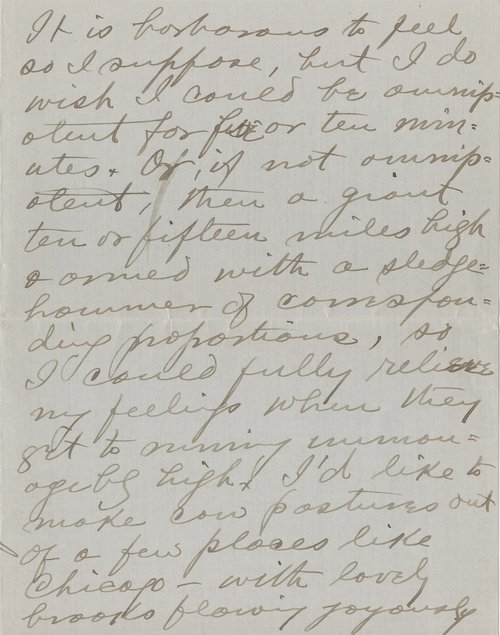 It is barbarous to feel
so I suppose, but I do
wish I could be omnip=
otent for five or ten min-
utes. Or, if not omnip=
otent, then a giant
ten or fifteen miles high
& armed with a sledge=
hammer of correspon-
ding proportions, so
I could fully relieve
my feelings when they
get to running unman=
ageably high. I'd like to
make cow pastures out
of a few places like
Chicago — with lovely
brooks flowing joyously